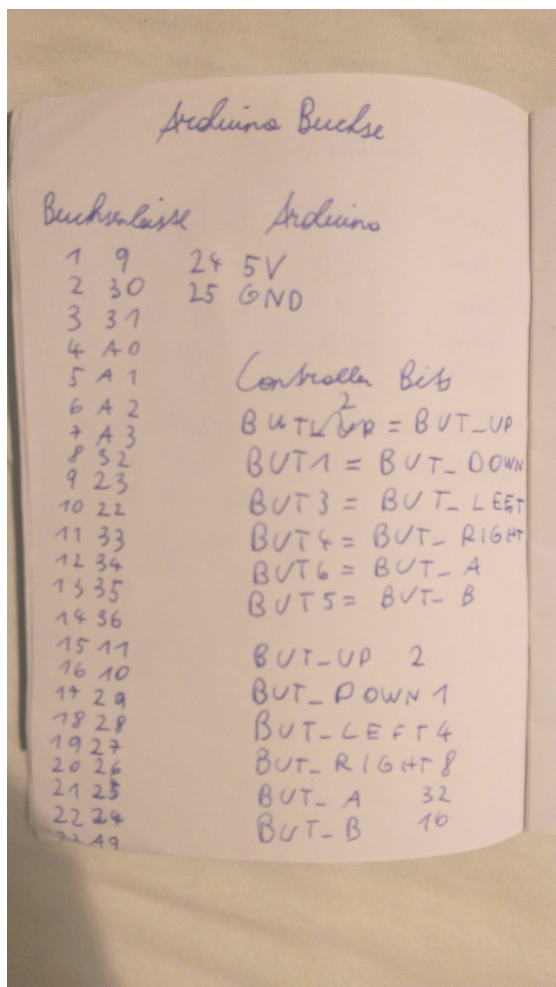 Arduino Buchse
Buchsenleiste Arduino
1 9 24 5V
2 30 25 GND
3 31
4 A0
5 A1
6 A2
7 A3
8 32
9 23
10 22
11 33
12 34
13 35
14 36
15 11
16 10
17 29
18 28
19 27
20 26
21 25
22 24
23 A9
Controller Bits
BUT2 = BUT_UP
BUT1 = BUT_DOWN
BUT3 = BUT_LEFT
BUT4 = BUT_RIGHT
BUT6 = BUT_A
BUT5 = BUT_B
BUT_UP 2
BUT_DOWN 1
BUT_LEFT 4
BUT_RIGHT 8
BUT_A 32
BUT_B 16